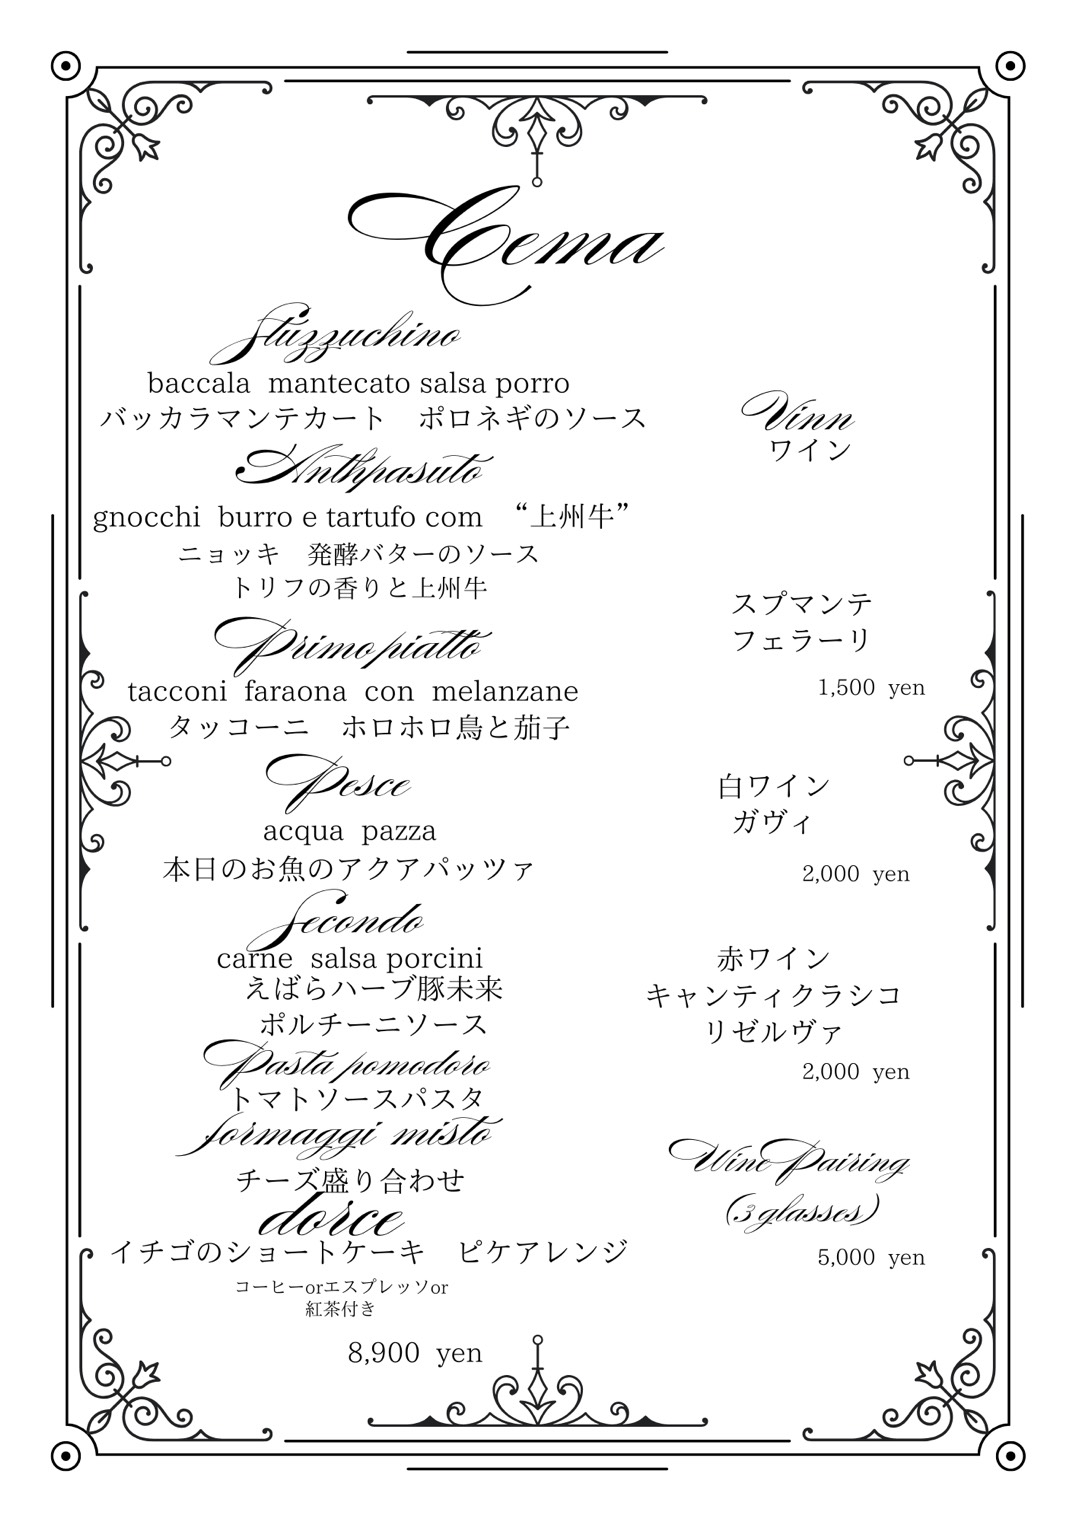 Cema
Stuzzuchino
baccala mantecato salsa porro
バッカラマンテカート　ポロネギのソース
Anthpasuto
gnocchi burro e tartufo com “上州牛”
ニョッキ　発酵バターのソース
トリフの香りと上州牛
Primo piatto
tacconi faraona con melanzane
タッコーニ　ホロホロ鳥と茄子
Pesce
acqua pazza
本日のお魚のアクアパッツァ
Secondo
carne salsa porcini
えばらハーブ豚未来
ポルチーニソース
Pasta pomodoro
トマトソースパスタ
formaggi misto
チーズ盛り合わせ
dorce
イチゴのショートケーキ　ピケアレンジ
コーヒーorエスプレッソor
紅茶付き
8,900 yen
Vinn
ワイン
スプマンテ
フェラーリ
1,500 yen
白ワイン
ガヴィ
2,000 yen
赤ワイン
キャンティクラシコ
リゼルヴァ
2,000 yen
Wine Pairing
(3 glasses)
5,000 yen